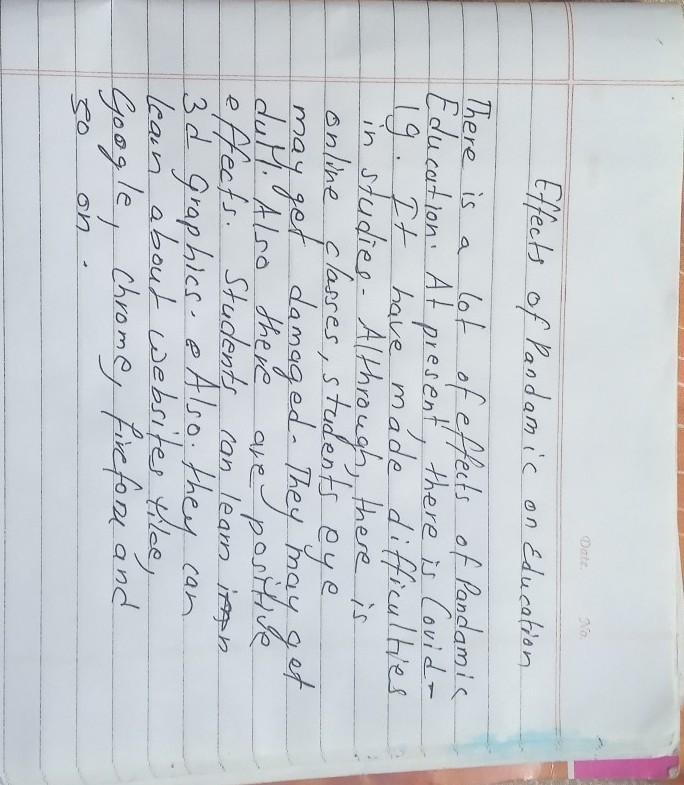 Date. No.
Effects of Pandamic on Education
There is a lot of effects of Pandamic
Education. At present, there is Covid-
19. It have made difficulties
in studies. Althrough, there is
online classes, students eye
may get damaged. They may get
dull. Also there are positive
effects. Students can learn in
3d Graphics. Also. they can
learn about websites like,
Google, chrome, firefox and
so on.